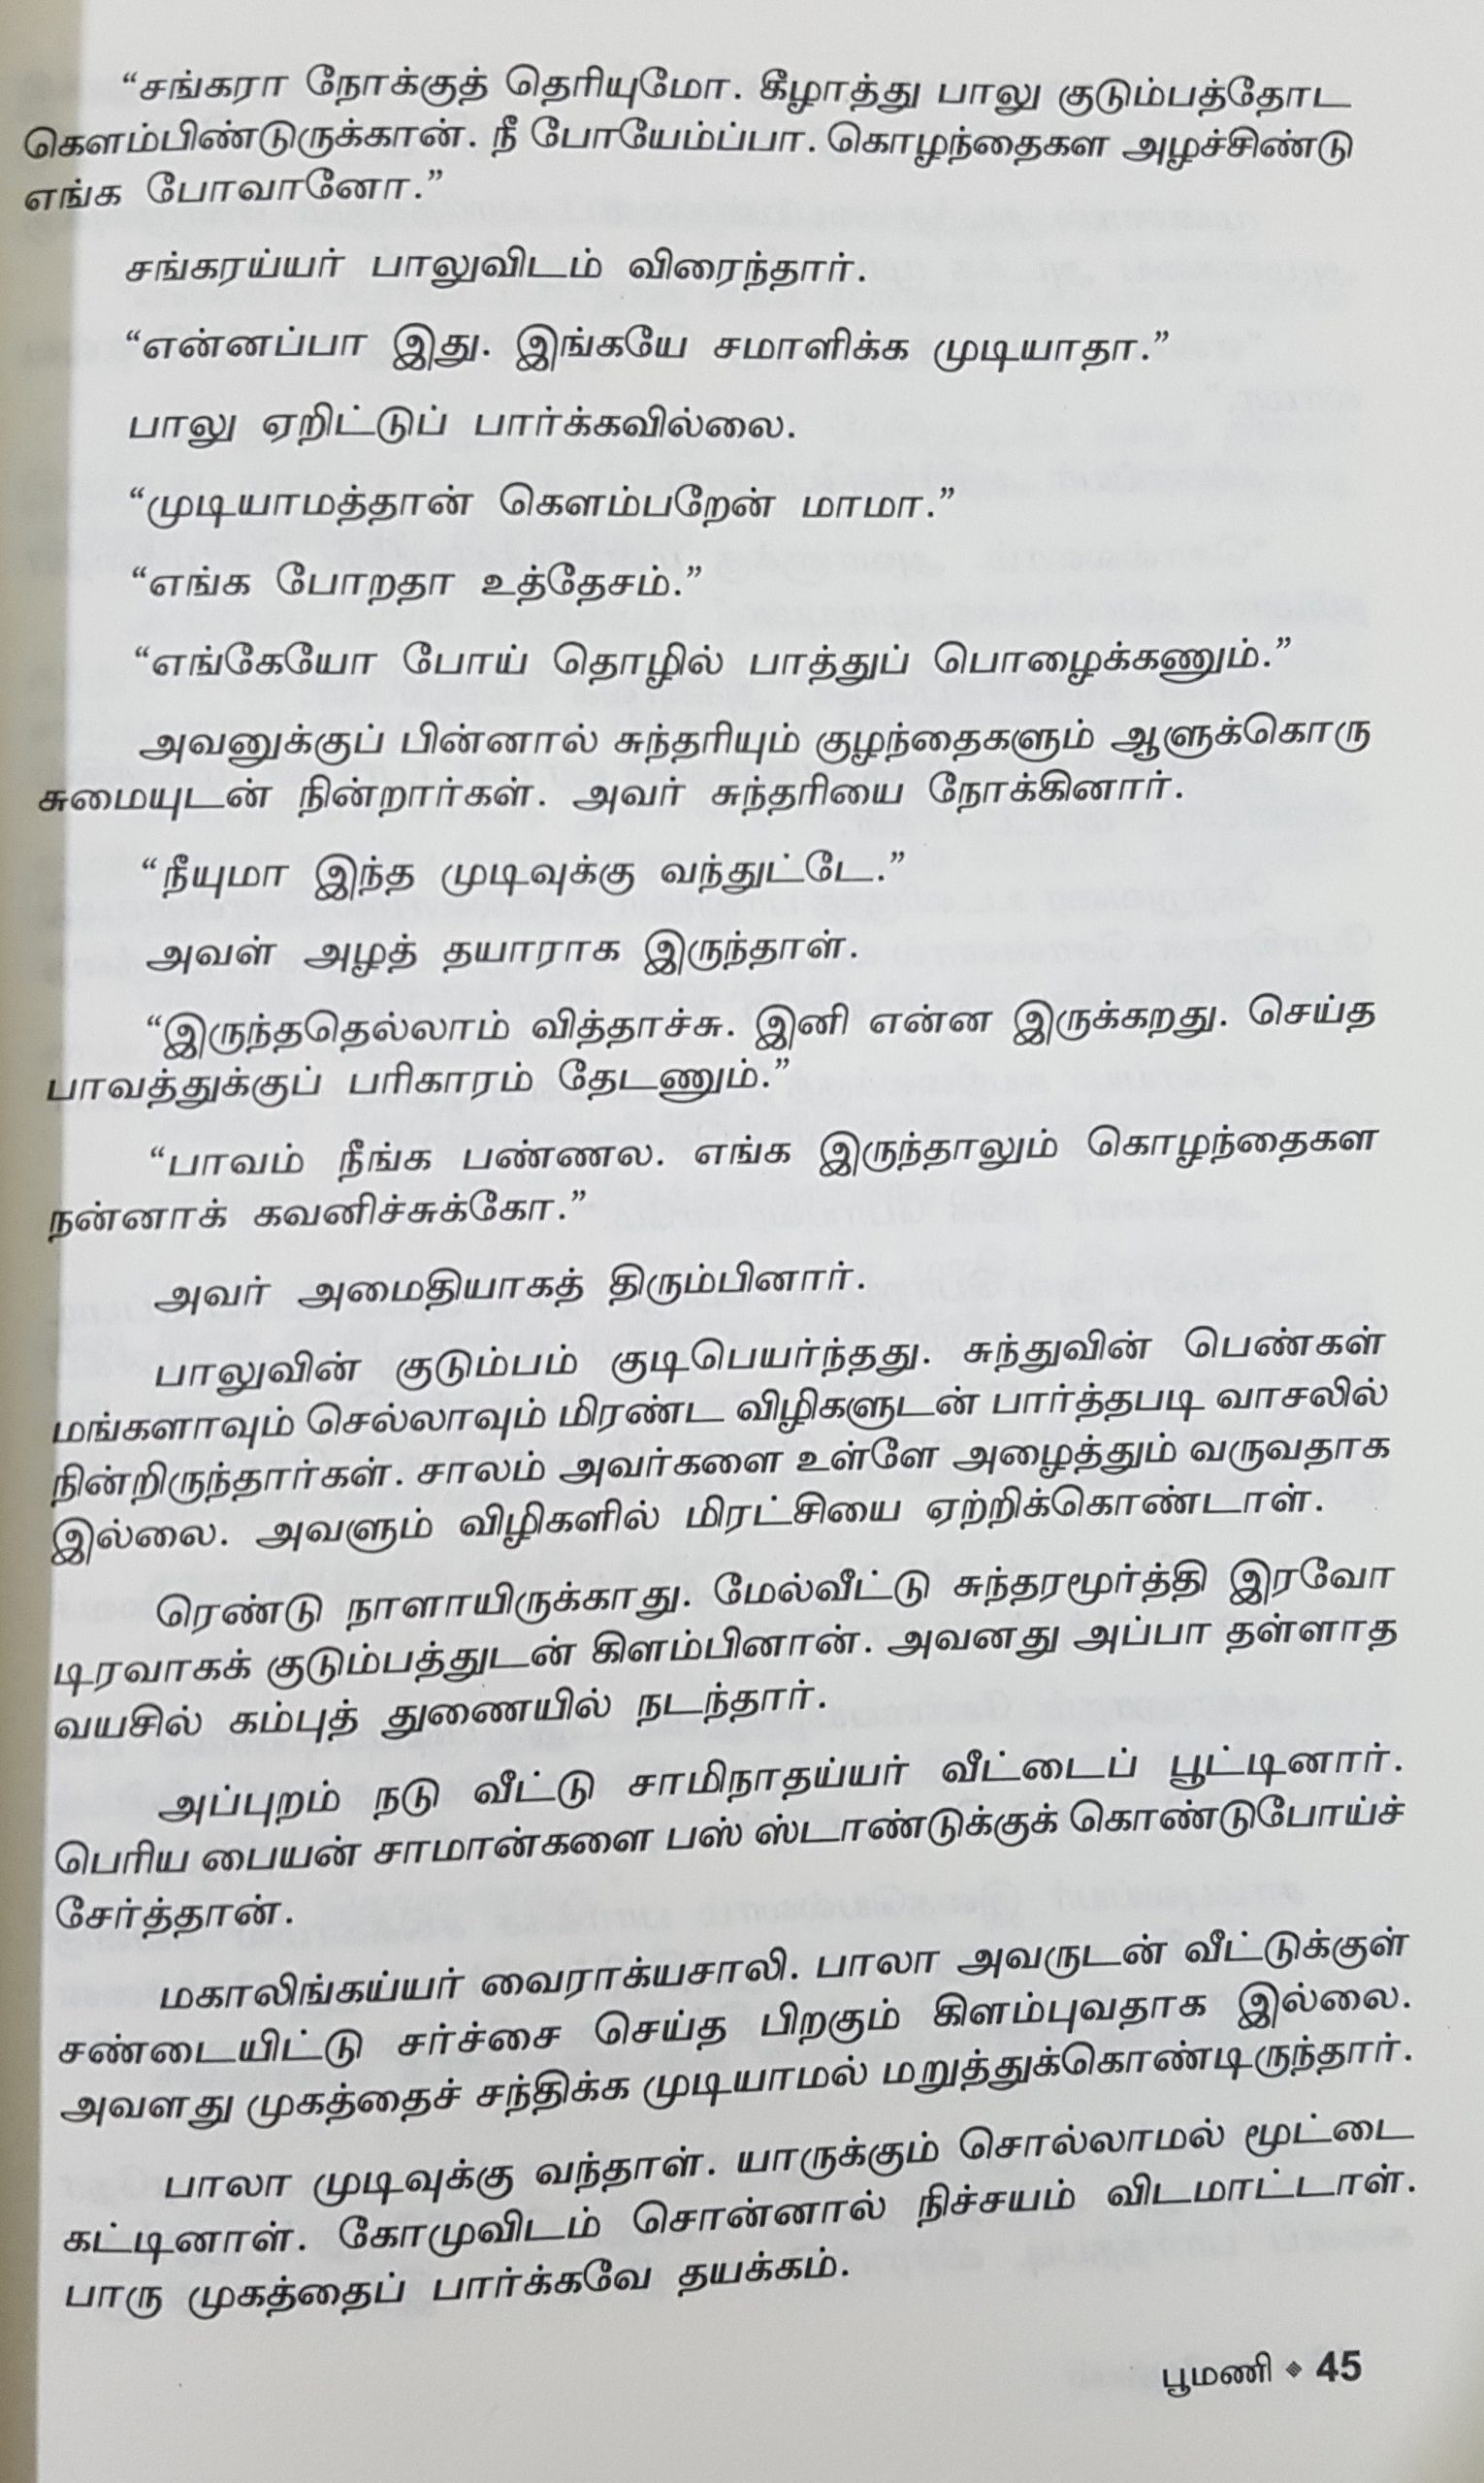 “சங்கரா நோக்குத் தெரியுமோ. கீழாத்து பாலு குடும்பத்தோட
கெளம்பிண்டுருக்கான். நீ போயேம்ப்பா. கொழந்தைகள அழச்சிண்டு
எங்க போவானோ.”
சங்கரய்யர் பாலுவிடம் விரைந்தார்.
“என்னப்பா இது. இங்கயே சமாளிக்க முடியாதா.”
பாலு ஏறிட்டுப் பார்க்கவில்லை.
“முடியாமத்தான் கெளம்பறேன் மாமா.”
“எங்க போறதா உத்தேசம்.”
“எங்கேயோ போய் தொழில் பாத்துப் பொழைக்கணும்.”
அவனுக்குப் பின்னால் சுந்தரியும் குழந்தைகளும் ஆளுக்கொரு
சுமையுடன் நின்றார்கள். அவர் சுந்தரியை நோக்கினார்.
“நீயுமா இந்த முடிவுக்கு வந்துட்டே.”
அவள் அழத் தயாராக இருந்தாள்.
“இருந்ததெல்லாம் வித்தாச்சு. இனி என்ன இருக்கறது. செய்த
பாவத்துக்குப் பரிகாரம் தேடணும்.”
“பாவம் நீங்க பண்ணல. எங்க இருந்தாலும் கொழந்தைகள
நன்னாக் கவனிச்சுக்கோ.”
அவர் அமைதியாகத் திரும்பினார்.
பாலுவின் குடும்பம் குடிபெயர்ந்தது. சுந்துவின் பெண்கள்
மங்களாவும் செல்லாவும் மிரண்ட விழிகளுடன் பார்த்தபடி வாசலில்
நின்றிருந்தார்கள். சாலம் அவர்களை உள்ளே அழைத்தும் வருவதாக
இல்லை. அவளும் விழிகளில் மிரட்சியை ஏற்றிக்கொண்டாள்.
ரெண்டு நாளாயிருக்காது. மேல்வீட்டு சுந்தரமூர்த்தி இரவோ
டிரவாகக் குடும்பத்துடன் கிளம்பினான். அவனது அப்பா தள்ளாத
வயசில் கம்புத் துணையில் நடந்தார்.
அப்புறம் நடு வீட்டு சாமிநாதய்யர் வீட்டைப் பூட்டினார்.
பெரிய பையன் சாமான்களை பஸ் ஸ்டாண்டுக்குக் கொண்டுபோய்ச்
சேர்த்தான்.
மகாலிங்கய்யர் வைராக்யசாலி. பாலா அவருடன் வீட்டுக்குள்
சண்டையிட்டு சர்ச்சை செய்த பிறகும் கிளம்புவதாக இல்லை.
அவளது முகத்தைச் சந்திக்க முடியாமல் மறுத்துக்கொண்டிருந்தார்.
பாலா முடிவுக்கு வந்தாள். யாருக்கும் சொல்லாமல் மூட்டை
கட்டினாள். கோமுவிடம் சொன்னால் நிச்சயம் விடமாட்டாள்.
பாரு முகத்தைப் பார்க்கவே தயக்கம்.
பூமணி ❖ 45